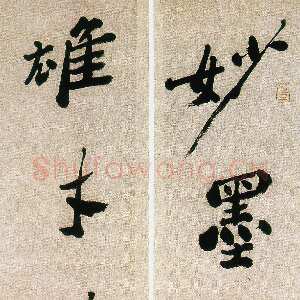 妙墨
雄才
Shufawang.cn